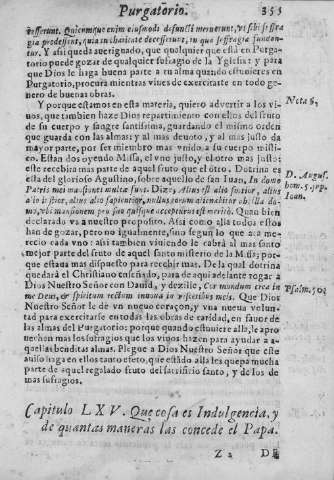 Purgatorio. 355
cesserunt. Quicumque enim eiusmodi defuncti meruerunt, vt sibi suffra
gia prodessent, quia in charitate decesserunt, in quo suffragia iuuantur
tur. Y assi queda aueriguado, que qualquier que està en Purga
torio puede gozar de qualquier sufragio de la Yglesia: y para
que Dios le haga buena parte a tu alma quando estuuieres en
Purgatorio, procura mientras viues de exercitarte en todo ge-
nero de buenas obras.
Y porque estamos en esta materia, quiero aduertir a los vi-
uos, que tambien haze Dios repartimiento con ellos del fruto
de su cuerpo y sangre santissima, guardando el mismo orden
que guarda con las almas: y al mas deuoto, y al mas justo da
mayor parte, por ser miembro mas vnido a su cuerpo misti-
co. Estan dos oyendo Missa, el vno justo, y el otro mas justo:
este recebira mas parte de aquel fruto que el otro. Dotrina es
esta del glorioso Agustino, sobre aquello de san Iuan, In domo
Patris mei mansiones multæ sunt. Dize, Alius est alio fortior, alius
alio iustior, alius alio sapientior, nullus eorum alienabitur ab illa do-
mo, vbi mansionem pro suo quisque accepturus est merito. Quan bien
declarado va a nuestro proposito. Assi como alla todos essos
han de gozar, pero no igualmente, sino segun lo que aca me-
recio cada vno: assi tambien viuiendo le cabrà al mas santo
mejor parte del fruto de aquel santo misterio de la Missa; por
que estaua mas dispuesto para recebir mas. De la qual dotrina
quedarà el Christiano enseñado, para de aqui adelante rogar a
Dios Nuestro Señor con Dauid, y dezille, Cor mundum crea in
me Deus, & spiritum rectum innoua in visceribus meis. Que Dios
Nuestro Señor le dè vn nueuo coraçon, y vna nueua volun-
tad para exercitarse en todas las obras de caridad, en fauor de
las almas del Purgatorio: porque quando estuuiere alla, le apro
uechen mas los sufragios que los viuos hazen para ayudar a a-
quellas benditas almas. Plegue a Dios Nuestro Señor que este
auiso haga en ellos tanto efeto, que estàdo alla les quepa mucha
parte de aquel regalado fruto del sacrificio santo, y de los de
mas sufragios.
Nota 8,
D. Augus.
hom. 5. sup.
Ioan.
Psalm. 50.
Capitulo LXV. Que cosa es Indulgencia, y
de quantas maneras las concede el Papa.
Z 2